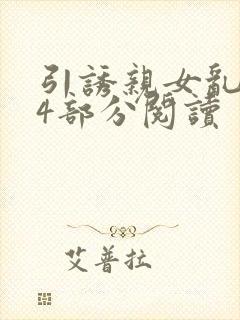 引誘親女亂
4部分閱讀
艾普拉